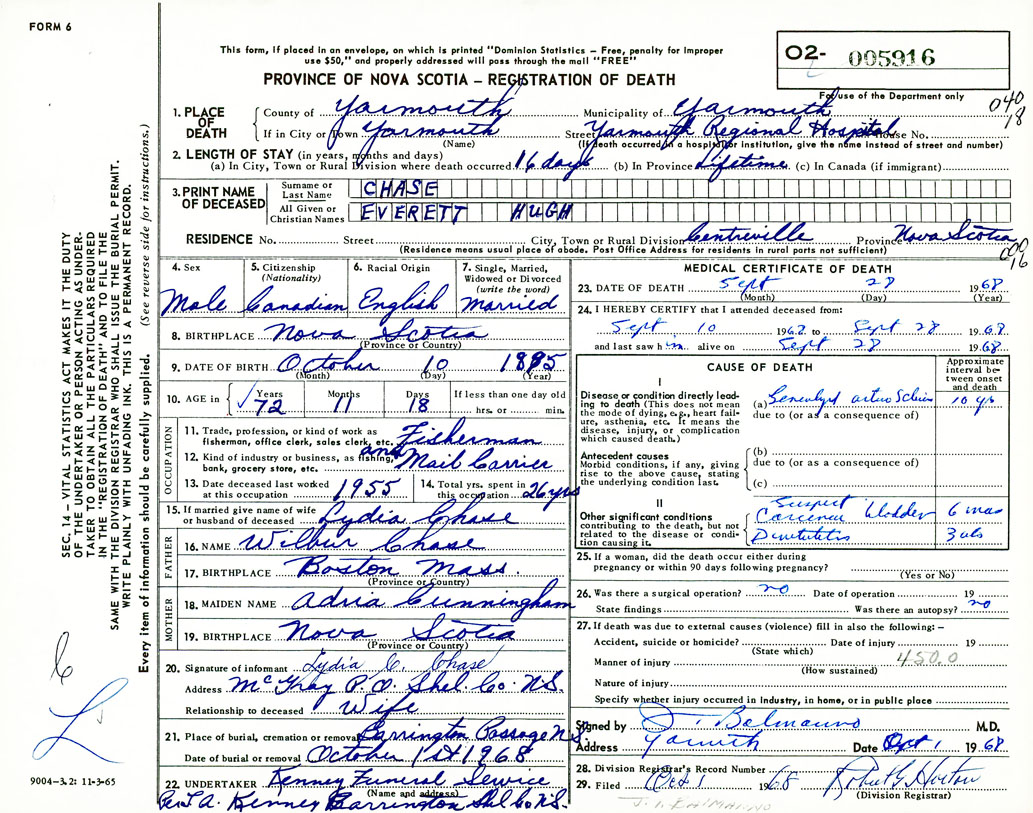 FORM 6
This form, if placed in an envelope, on which is printed "Dominion Statistics – Free, penalty for improper
use $50," and properly addressed will pass through the mail "FREE"
PROVINCE OF NOVA SCOTIA – REGISTRATION OF DEATH
02- 005916
For use of the Department only
040
18
1. PLACE OF DEATH
County of Yarmouth Municipality of Yarmouth
If in City or Town Yarmouth Street Yarmouth Regional Hospital House No.
(Name) (If death occurred in a hospital or institution, give the name instead of street and number)
2. LENGTH OF STAY (in years, months and days)
(a) In City, Town or Rural Division where death occurred 16 days (b) In Province Lifetime (c) In Canada (if immigrant)
3. PRINT NAME OF DECEASED
Surname or Last Name CHASE
All Given or Christian Names EVERETT HUGH
RESIDENCE No. Street City, Town or Rural Division Centreville Province Nova Scotia
(Residence means usual place of abode. Post Office Address for residents in rural parts not sufficient)
000
16
4. Sex Male
5. Citizenship (Nationality) Canadian
6. Racial Origin English
7. Single, Married, Widowed or Divorced (write the word) Married
8. BIRTHPLACE Nova Scotia
(Province or Country)
9. DATE OF BIRTH October 10 1895
(Month) (Day) (Year)
10. AGE in Years Months Days If less than one day old
72 11 18 hrs. or min.
OCCUPATION
11. Trade, profession, or kind of work as fisherman, office clerk, sales clerk, etc. Fisherman
and
12. Kind of industry or business, as fishing, bank, grocery store, etc. Mail Carrier
13. Date deceased last worked at this occupation 1955
14. Total yrs. spent in this occupation 26 yrs
15. If married give name of wife or husband of deceased Lydia Chase
FATHER
16. NAME Wilbur Chase
17. BIRTHPLACE Boston Mass.
(Province or Country)
MOTHER
18. MAIDEN NAME Adria Cunningham
19. BIRTHPLACE Nova Scotia
(Province or Country)
20. Signature of informant Lydia C. Chase
Address McGray P.O. Shel. Co. N.S.
Relationship to deceased Wife
21. Place of burial, cremation or removal Barrington Passage N.S.
Date of burial or removal October 1st 1968
22. UNDERTAKER Kenney Funeral Service
(Name and address)
Kenney Barrington Shel Co N.S.
MEDICAL CERTIFICATE OF DEATH
23. DATE OF DEATH Sept 28 1968
(Month) (Day) (Year)
24. I HEREBY CERTIFY that I attended deceased from:
Sept 10 1968 to Sept 28 1968
and last saw him alive on Sept 28 1968
CAUSE OF DEATH
Approximate interval between onset and death
I
Disease or condition directly leading to death (This does not mean the mode of dying, e.g., heart failure, asthenia, etc. It means the disease, injury, or complication which caused death.)
(a) 10 yrs
due to (or as a consequence of)
Antecedent causes
Morbid conditions, if any, giving rise to the above cause, stating the underlying condition last.
(b)
due to (or as a consequence of)
(c)
II
Other significant conditions contributing to the death, but not related to the disease or condition causing it.
Suspect
bladder 6 mos
25. If a woman, did the death occur either during pregnancy or within 90 days following pregnancy?
(Yes or No)
26. Was there a surgical operation? no Date of operation 19
State findings Was there an autopsy? no
27. If death was due to external causes (violence) fill in also the following: –
Accident, suicide or homicide? Date of injury 19
(State which)
Manner of injury 450.0
(How sustained)
Nature of injury
Specify whether injury occurred in industry, in home, or in public place
Signed by Balmanno M.D.
Address Yarmouth Date Oct 1 1968
28. Division Registrar's Record Number
29. Filed Oct 1 1968 Robert G Horton
(Division Registrar)
J. I. BALMANNO
SEC. 14 – VITAL STATISTICS ACT MAKES IT THE DUTY
OF THE UNDERTAKER OR PERSON ACTING AS UNDER-
TAKER TO OBTAIN ALL THE PARTICULARS REQUIRED
IN THE "REGISTRATION OF DEATH" AND TO FILE THE
SAME WITH THE DIVISION REGISTRAR WHO SHALL ISSUE THE BURIAL PERMIT.
WRITE PLAINLY WITH UNFADING INK. THIS IS A PERMANENT RECORD.
Every item of information should be carefully supplied. (See reverse side for instructions.)
9004-3.2: 11-3-65